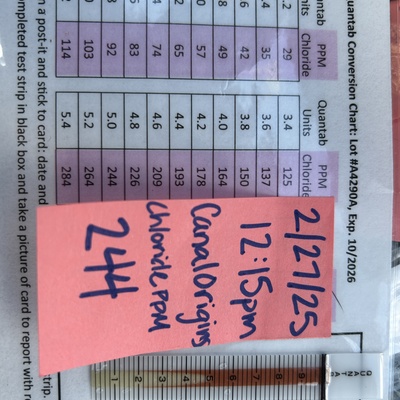 Quantab Conversion Chart: Lot #A4290A, Exp. 10/2026
Quantab PPM Quantab PPM
Chloride Units Chloride
.2 29 3.4 125
35 3.6 137
.6 42 3.8 150
.8 49 4.0 164
.0 57 4.2 178
.2 65 4.4 193
.4 74 4.6 209
.6 83 4.8 226
.8 92 5.0 244
.0 103 5.2 264
.2 114 5.4 284
on a post-it and stick to card: date and
strip.
completed test strip in black box and take a picture of card to report with
2/27/25
12:15pm
Canal Origins
Chloride PPM
244
QUANTAB
1 2 3 4 5 6 7 8 9